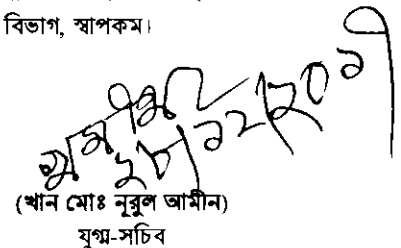 বিভাগ, স্বাপকম।
(খান মোঃ নূরুল আমীন)
যুগ্ম-সচিব